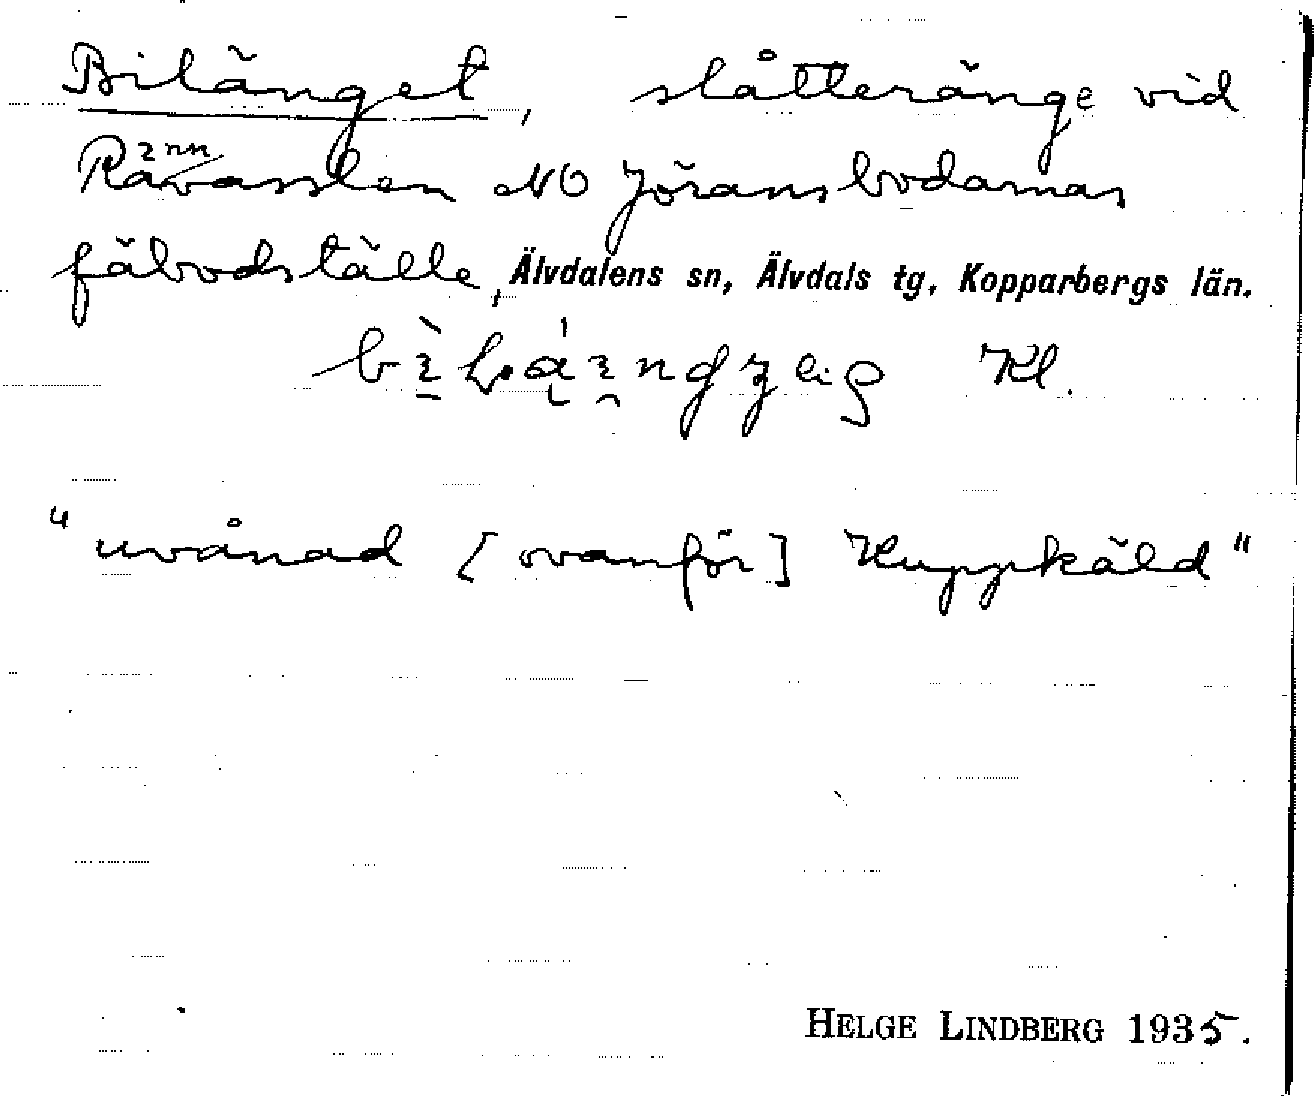 Bilänget, slåtteränge vid
Rävasslen NO Jöransbodarnas
fäbodställe, Älvdalens sn, Älvdals tg, Kopparbergs län.
Kl.
"uvånad [ovanför] Kuppkäld"
HELGE LINDBERG 1935.